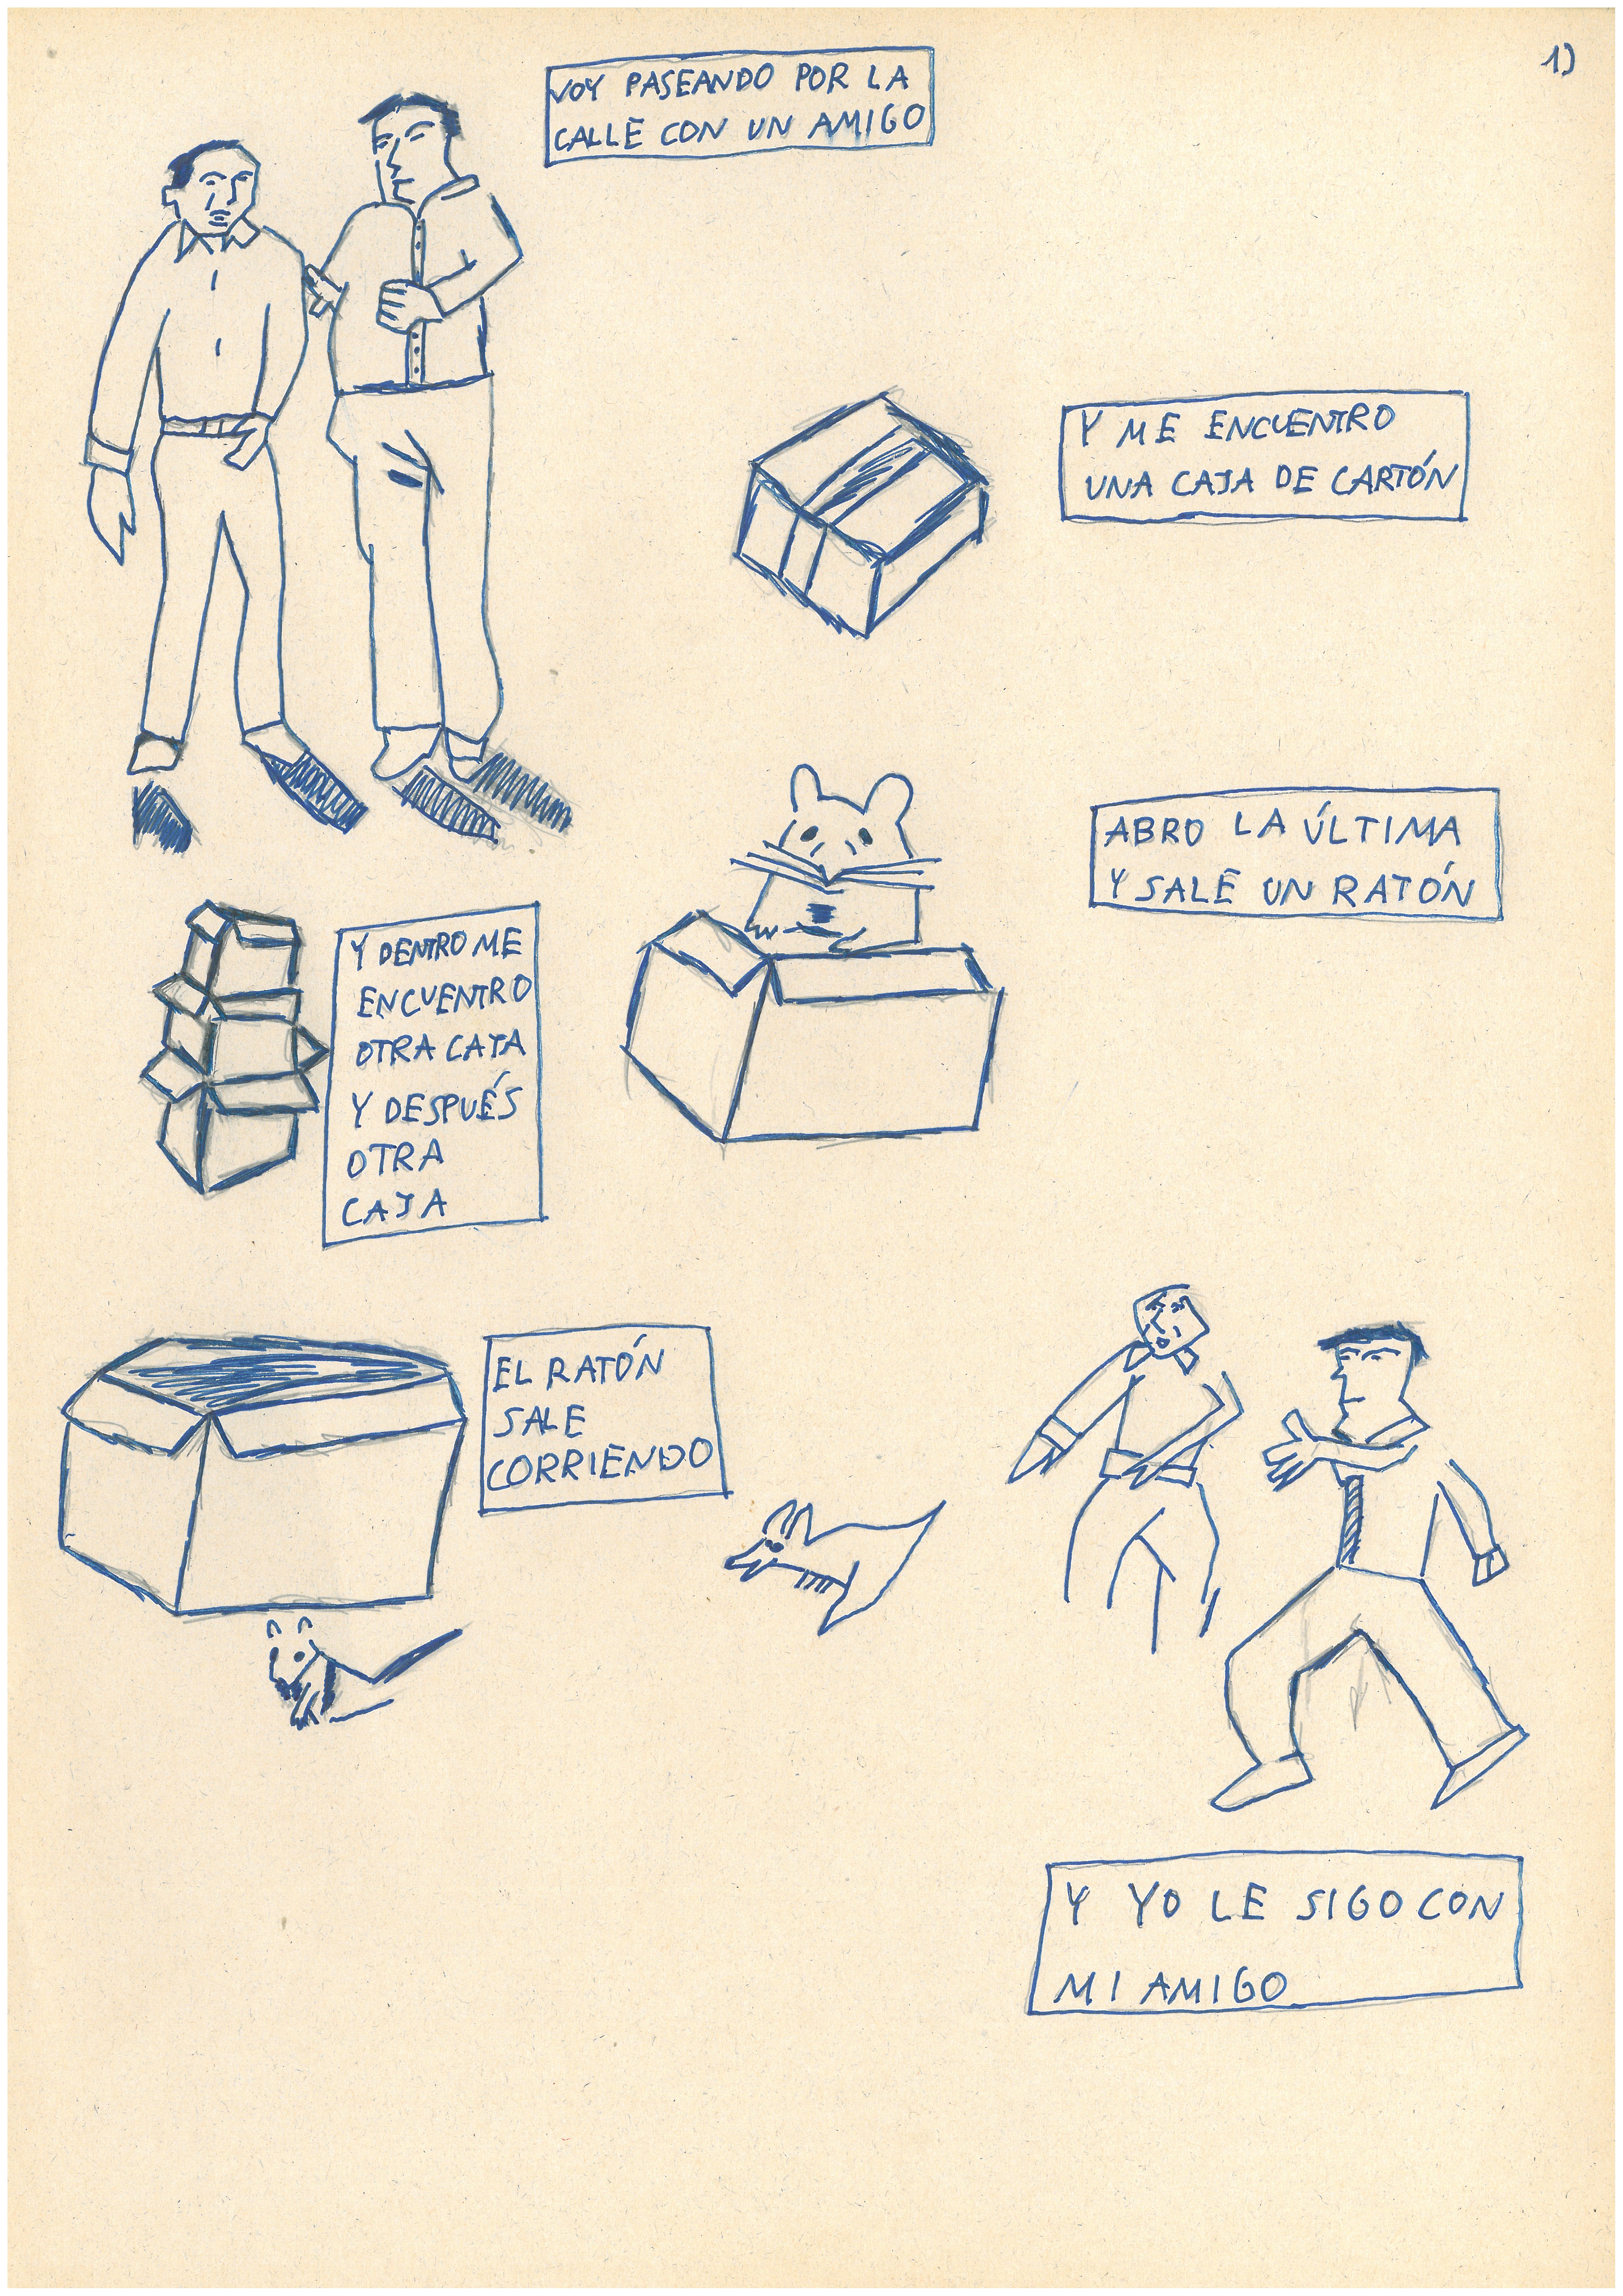 1)
VOY PASEANDO POR LA
CALLE CON UN AMIGO
Y ME ENCUENTRO
UNA CAJA DE CARTÓN
Y DENTRO ME
ENCUENTRO
OTRA CAJA
Y DESPUÉS
OTRA
CAJA
ABRO LA ÚLTIMA
Y SALE UN RATÓN
EL RATÓN
SALE
CORRIENDO
Y YO LE SIGO CON
MI AMIGO